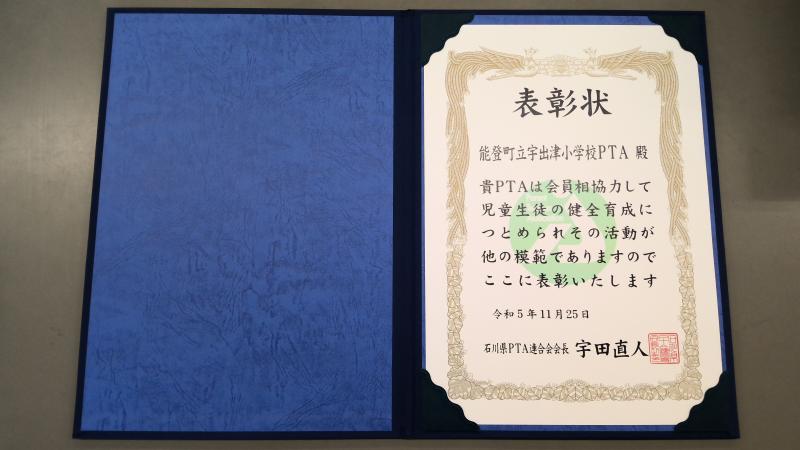 表彰状
能登町立宇出津小学校PTA 殿
貴PTAは会員相協力して
児童生徒の健全育成に
つとめられその活動が
他の模範でありますので
ここに表彰いたします
令和5年11月25日
石川県PTA連合会会長 宇田直人